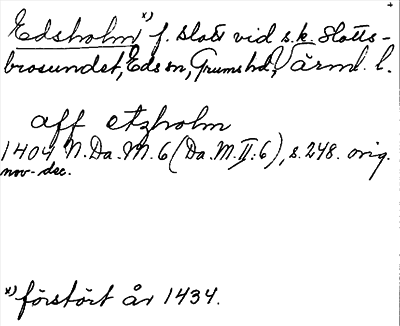 Edsholm x) f. slott vid s.k. Slotts-
brosundet, Eds sn, Grums hd, Värml. l.
aff etzholm
1404 N.Da.M. 6 (Da.M.II:6), s. 248. orig.
nov-dec.
x) förstört år 1434.